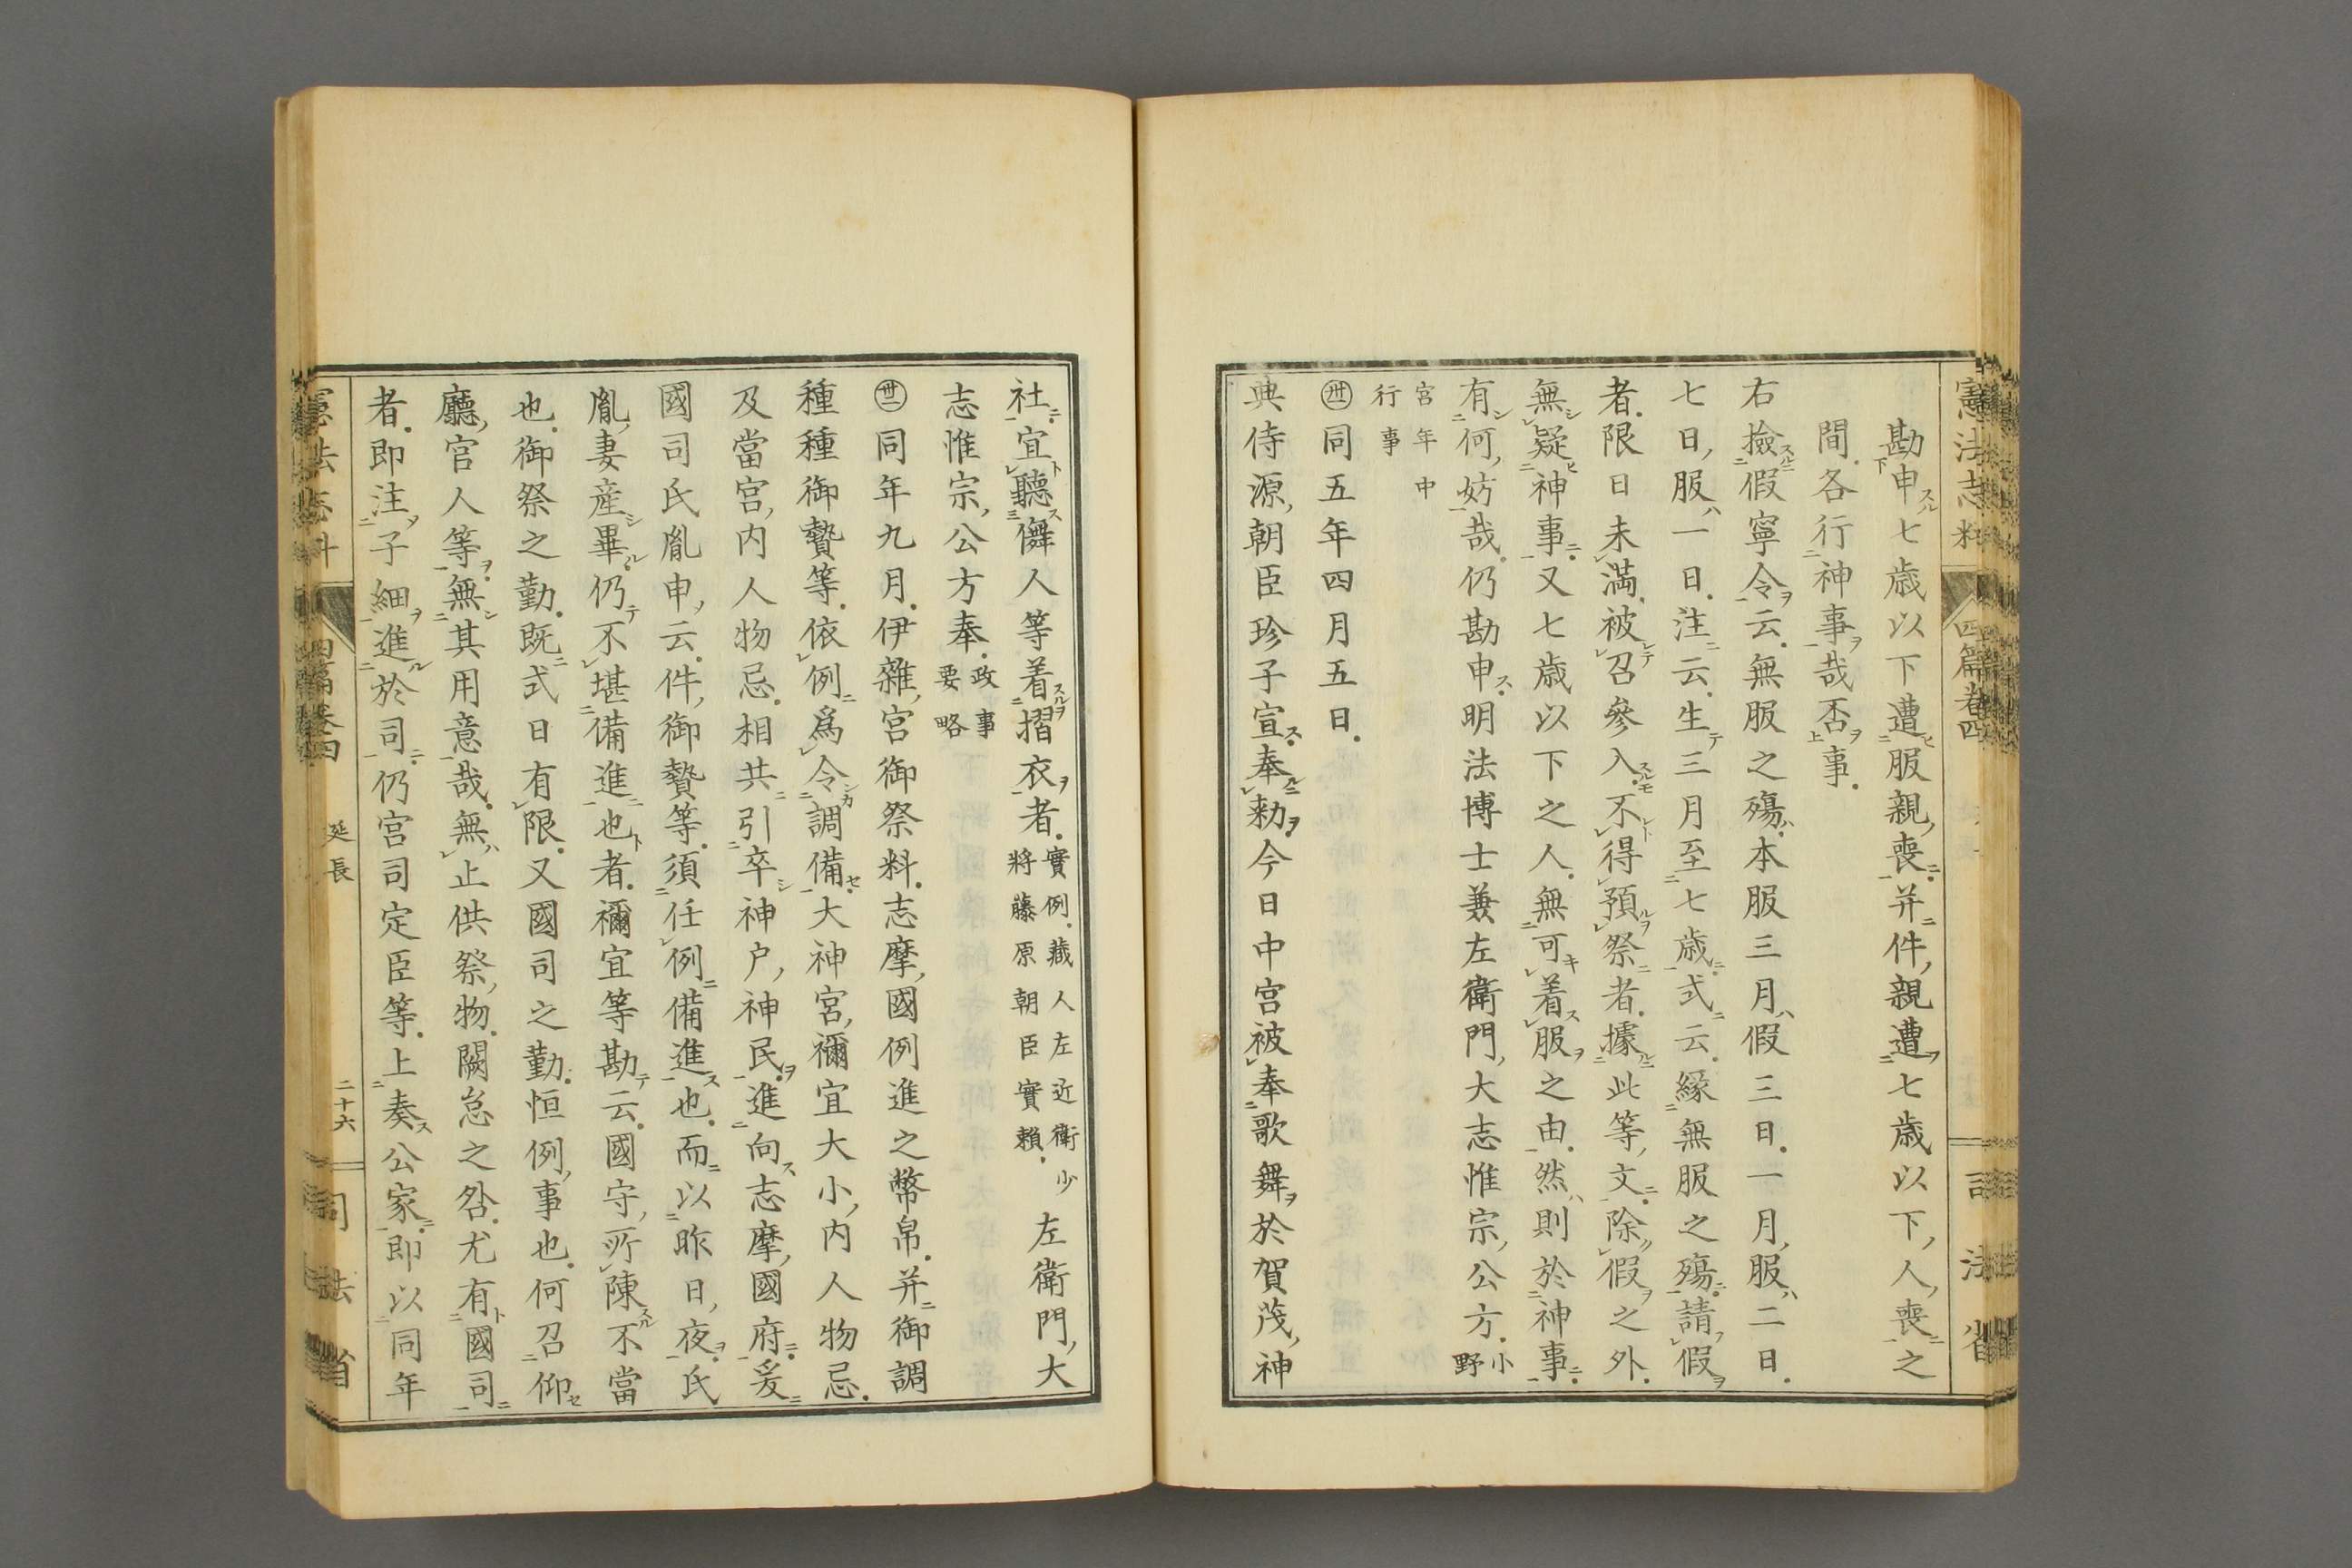 憲法志料 四篇卷四 司法省
勘申七歳以下遭服親喪并件親遭七歳以下人喪之
間各行神事哉否事
右撿假寧令云無服之殤本服三月假三日一月服二日
七日服一日注云生三月至七歳式云縁無服之殤請假
者限日未滿被召參入不得預祭者據此等文除假之外
無疑神事又七歳以下之人無可着服之由然則於神事
有何妨哉仍勘申明法博士兼左衛門大志惟宗公方小野
宮年中
行事
㊴同五年四月五日
典侍源朝臣珍子宣奉勅今日中宮被奉歌舞於賀茂神
社宜聽儛人等着摺衣者實例藏人左近衛少將藤原朝臣實頼左衛門大
志惟宗公方奉政事要略
同年九月伊雜宮御祭料志摩國例進之幣帛并御調
種種御贄等依例爲令調備大神宮禰宜大小内人物忌
及當宮内人物忌相共引卒神户神民進向志摩國府爰
國司氏胤申云件御贄等須任例備進也而以昨日夜氏
胤妻産畢仍不堪備進也者禰宜等勘云國守所陳不當
也御祭之勤既式日有限又國司之勤恒例事也何召仰
廳官人等無其用意哉無止供祭物闕怠之咎尤有國司
者即注子細進於司仍宮司定臣等上奏公家即以同年
憲法志料 四篇卷四 延長 二十六 司法省